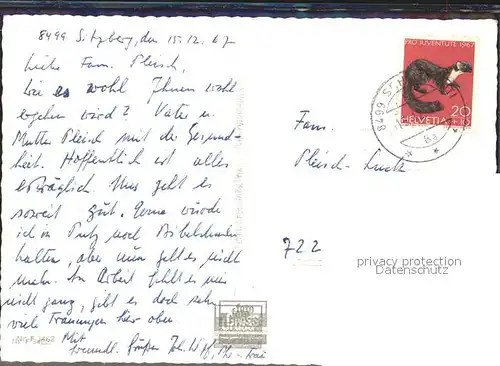 8499 Sitzberg, den 15.12.67
Liebe Fam. Pleisch,
Wie es wohl Ihnen wohl
ergehen wird? Vater u.
Mutter Pleisch mit der Gesund-
heit. Hoffentlich ist alles
erträglich. Uns geht es
soweit gut. Gerne würde
ich in Putz noch Bibelstunden
halten, aber nun geht es nicht
mehr. An Arbeit fehlt es mir
nicht ganz, gibt es doch sehr
viele Trauungen hier oben
Mit
freundl. Grüßen
PRO JUVENTUTE 1967
20
HELVETIA
8499
Fam.
Pleisch-
722
privacy protection
Datenschutz